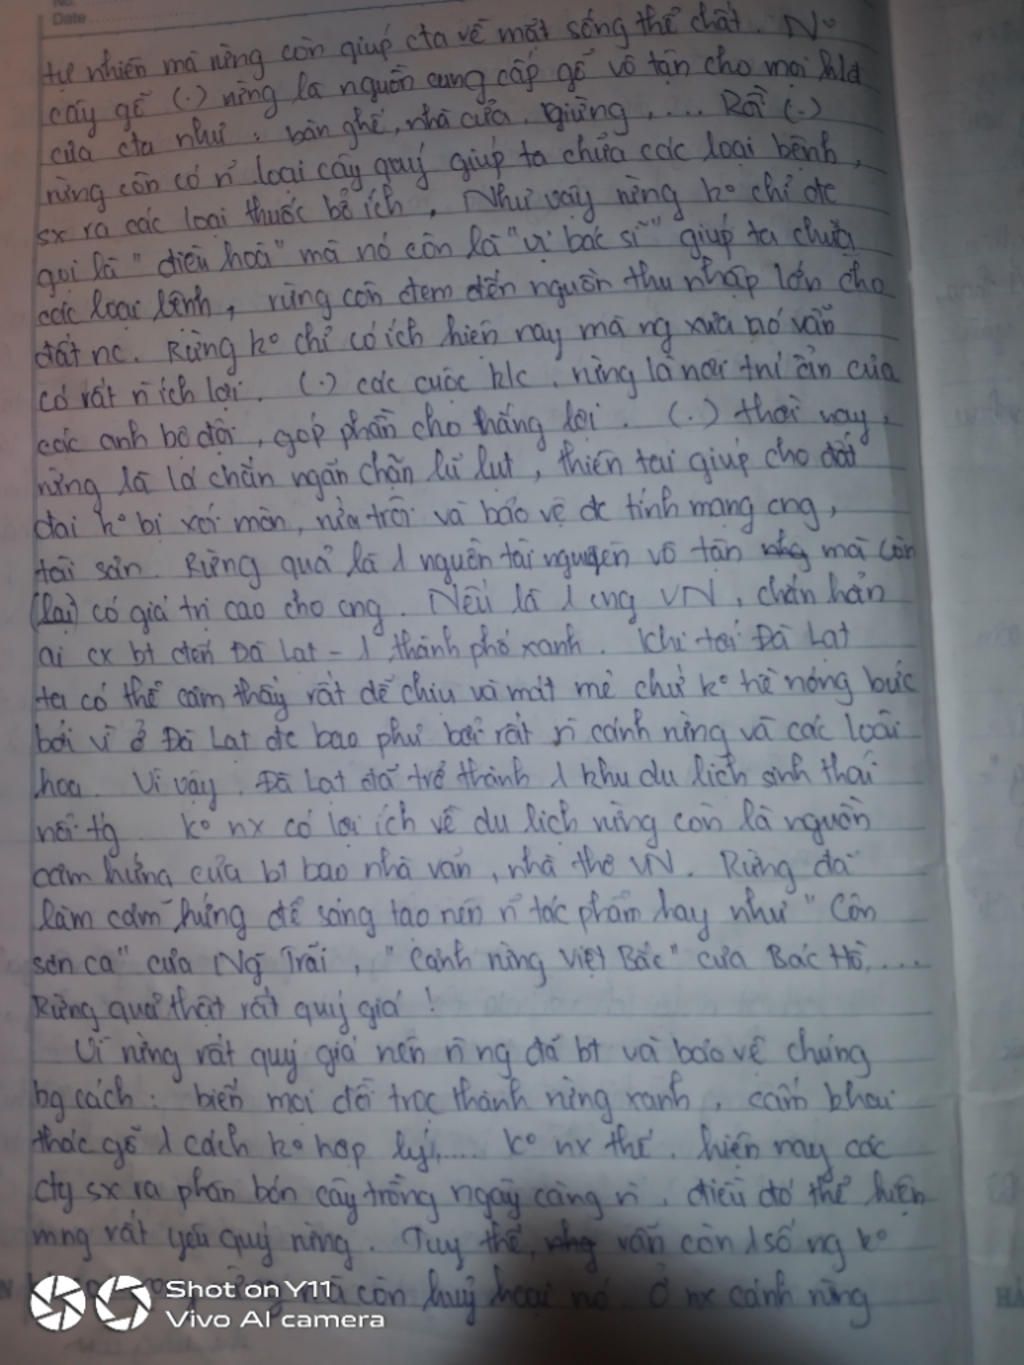 No.
Date
tự nhiên mà rừng còn giúp cta về mặt sống thể chất.
cây gỗ (.) rừng là nguồn cung cấp gỗ vô tận cho mọi
của cta như: bàn ghế, nhà cửa, giường, .... Rồi (.)
rừng còn có n̄ loại cây quý giúp ta chữa các loại bệnh,
sx ra các loại thuốc bổ ích. Như vậy rừng ko chỉ đc
gọi là "điều hoà" mà nó còn là "vị bác sĩ" giúp ta chữa
các loại bệnh, rừng còn đem đến nguồn thu nhập lớn cho
đất nc. Rừng ko chỉ có ích hiện nay mà ng xưa nó vẫn
có rất n̄ ích lợi. (.) các cuộc k/c, rừng là nơi trú ẩn của
các anh bộ đội, góp phần cho thắng lợi. (.) thời nay,
rừng là lá chắn ngăn chặn lũ lụt, thiên tai giúp cho đất
đai ko bị xói mòn, rửa trôi và bảo vệ đc tính mạng cng,
tài sản. Rừng quả là 1 nguồn tài nguyên vô tận mà còn
(lại) có giá trị cao cho cng. Nếu là 1 cng VN, chắn hẳn
ai cx bt đến Đà Lạt - 1 thành phố xanh. Khi tới Đà Lạt
ta có thể cảm thấy rất dễ chịu và mát mẻ chứ ko hề nóng bức
bởi vì ở Đà Lạt đc bao phủ bởi rất n̄ cánh rừng và các loài
hoa. Vì vậy, Đà Lạt đã trở thành 1 khu du lịch sinh thái
nổi tg. ko nx có lợi ích về du lịch rừng còn là nguồn
cảm hứng của bt bao nhà văn, nhà thơ VN. Rừng đã
làm cảm hứng để sáng tạo nên n̄ tác phẩm hay như "Côn
sơn ca" của Ng~ Trãi, "Cảnh rừng Việt Bắc" của Bác Hồ, ....
Rừng quả thật rất quý giá!
Vì rừng rất quý giá nên n̄ ng đã bt và bảo vệ chúng
bg cách: biến mọi đồi trọc thành rừng xanh, cấm khai
thác gỗ 1 cách ko hợp lý,.... ko nx thế, hiện nay các
cty sx ra phân bón cây trồng ngày càng n̄, điều đó thể hiện
mng rất yêu quý rừng. Tuy thế, vẫn còn 1 số ng ko
mà còn huỷ hoại nó. Ở nx cánh rừng
Shot on Y11
Vivo AI camera